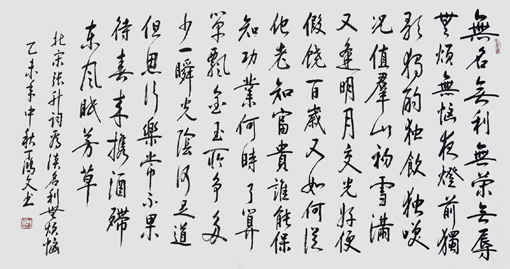 無名無利無榮無辱
無煩無惱夜燈前獨
歌獨酌独飲独笑
况值羣山初雪滿
又逢明月交光好便
假饒百歲又如何從
他老知富貴誰能保
知功業何時了算
箪瓢金玉所争多
少一瞬光陰何足道
但思行樂常不早
待春来攜酒殢
東風眠芳草
北宋張升詞為淡名利無煩惱
乙未年中秋文书